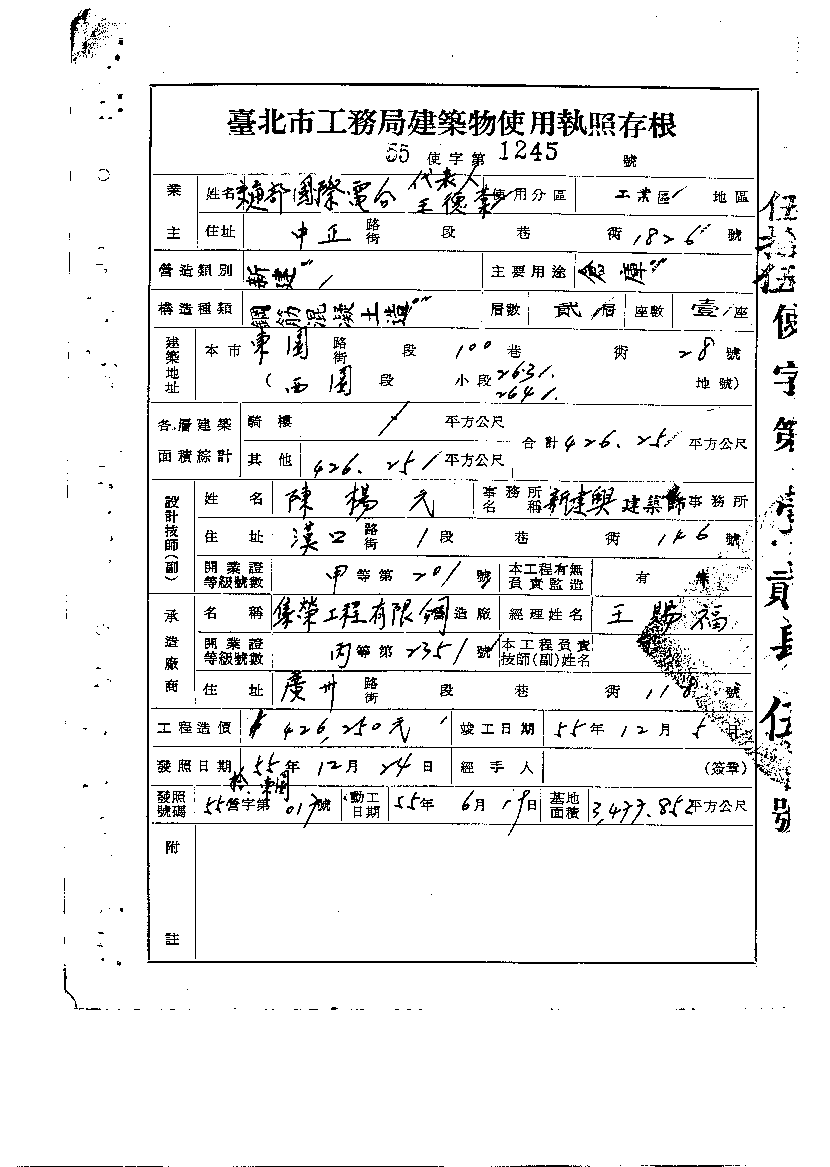 臺北市工務局建築物使用執照存根
55 使字第 1245 號
業主 姓名 交通部國際電台 代表人 王德 使用分區 工業區 地區
住址 中正 路街 段 巷 衖 1826 號
營造類別 新建 主要用途 倉庫
構造種類 鋼筋混凝土造 層數 貳層 座數 壹座
建築地址 本市 東園 路街 段 100 巷 衖 28 號
(西園 段 小段 2631. 2641. 地號)
各層建築面積綜計 騎樓 平方公尺 合計 426.25 平方公尺
其他 426.25 平方公尺
設計技師(副) 姓名 陳楊元 事務所名稱 新建興建築師事務所
住址 漢口 路街 1 段 巷 衖 146 號
開業證等級號數 甲等第 201 號 本工程有無負責監造 有 無
承造廠商 名稱 集榮工程有限公司 造廠 經理姓名 王賜福
開業證等級號數 丙等第 2351 號 本工程負責技師(副)姓名
住址 廣州 路街 段 巷 衖 118 號
工程造價 426,250元 竣工日期 55年12月5日
發照日期 55年12月24日 經手人 (簽章)
發照號碼 55營字第 017 號 動工日期 55年6月19日 基地面積 3,477.852平方公尺
附註
伍拾伍使字第
號